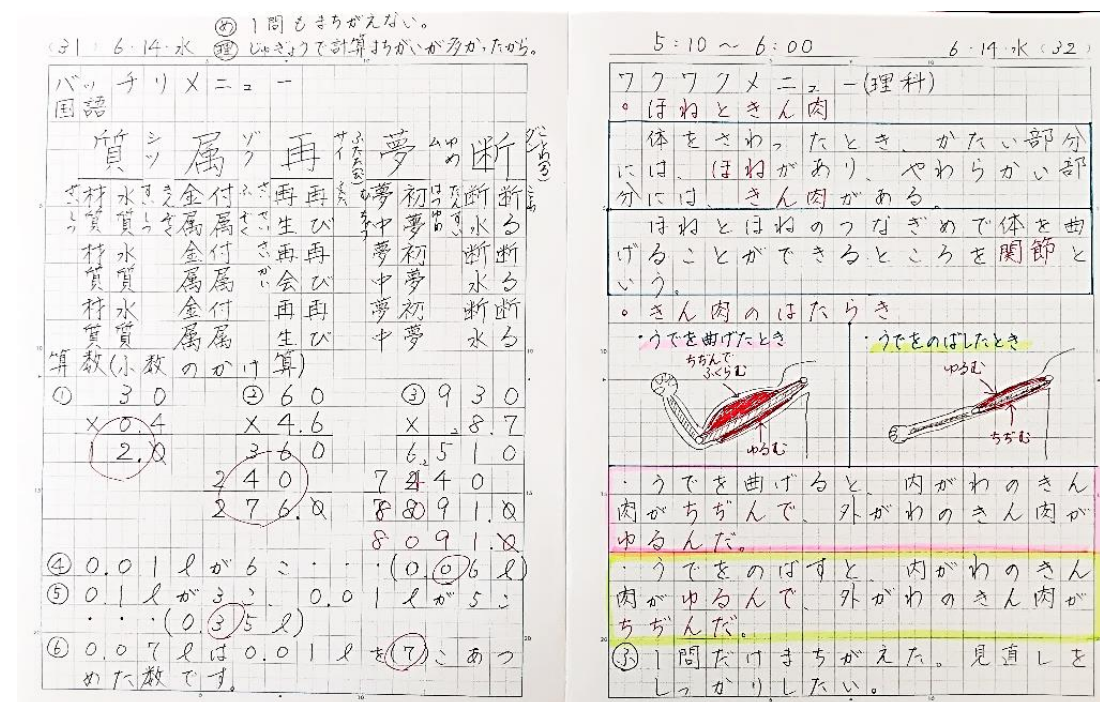 め 1問もまちがえない。
(31) 6・14・水 理 じゅぎょうで計算まちがいが多かったから。
バッチリメニュー
国語
断 ことわ(る) ダン
夢 ゆめ ム
再 ふたた(び) サイ
属 ゾク
質 シツ
断る 断水 初夢 夢中 再び 再生 付属 金属 水質 材質
断る 断水 初夢 夢中 再び 再会 付属 金属 水質 材質
断る 断水 初夢 夢中 再び 再生 付属 金属 水質 材質
算数(小数のかけ算)
① 30
×0.4
12.0
② 60
×4.6
360
240
276.0
③ 930
×8.7
6510
7440
8091.0
8091.0
④ 0.01ℓが6こ・・・(0.06ℓ)
⑤ 0.1ℓが3こ、0.01ℓが5こ
・・・(0.35ℓ)
⑥ 0.07ℓは0.01ℓを(7)こあつ
めた数です。
5:10〜6:00 6・14・水(32)
ワクワクメニュー(理科)
。ほねときん肉
体をさわったとき、かたい部分
には、ほねがあり、やわらかい部
分には、きん肉がある。
ほねとほねのつなぎめで体を曲
げることができるところを関節と
いう。
。きん肉のはたらき
・うでを曲げたとき
ちぢんで
ふくらむ
ゆるむ
・うでをのばしたとき
ゆるむ
ちぢむ
・うでを曲げると、内がわのきん
肉がちぢんで、外がわのきん肉が
ゆるんだ。
・うでをのばすと、内がわのきん
肉がゆるんで、外がわのきん肉が
ちぢんだ。
ふ 1問だけまちがえた。見直しを
しっかりしたい。